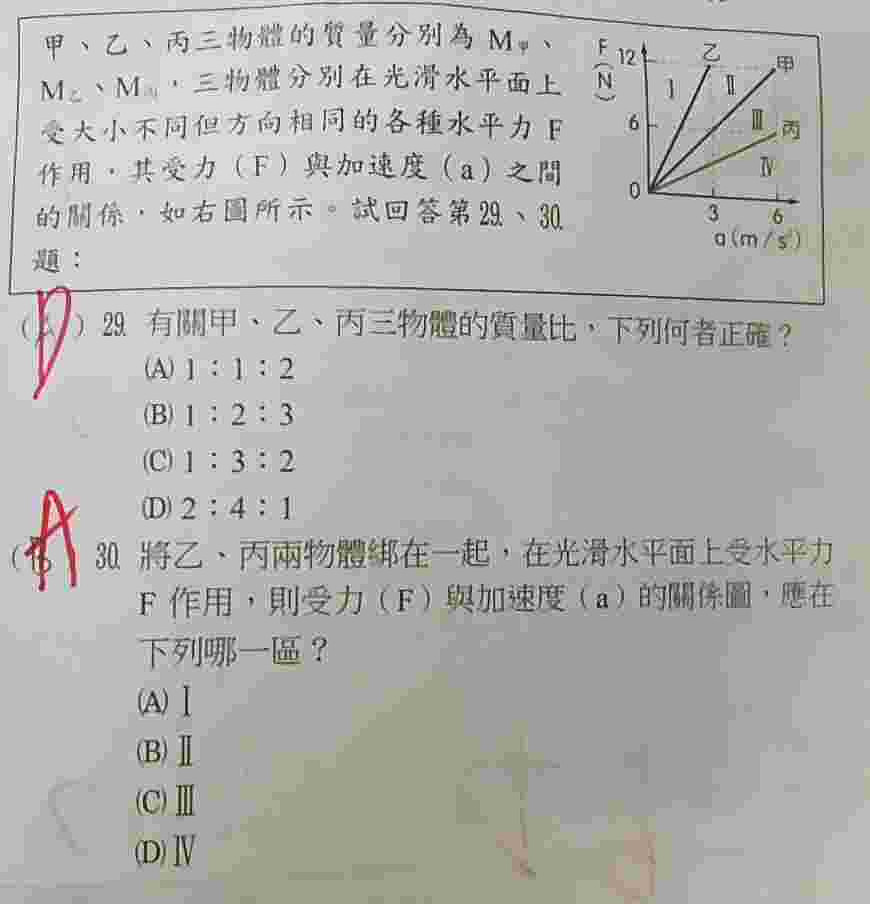 甲、乙、丙三物體的質量分別為 M甲、
M乙、M丙,三物體分別在光滑水平面上
受大小不同但方向相同的各種水平力 F
作用,其受力(F)與加速度(a)之間
的關係,如右圖所示。試回答第 29.、30.
題:
F(N)
12
6
0
3
6
a(m/s²)
乙
甲
丙
Ⅰ
Ⅱ
Ⅲ
Ⅳ
D
( ) 29. 有關甲、乙、丙三物體的質量比,下列何者正確?
(A) 1:1:2
(B) 1:2:3
(C) 1:3:2
(D) 2:4:1
A
( 30. 將乙、丙兩物體綁在一起,在光滑水平面上受水平力
F 作用,則受力(F)與加速度(a)的關係圖,應在
下列哪一區?
(A) Ⅰ
(B) Ⅱ
(C) Ⅲ
(D) Ⅳ